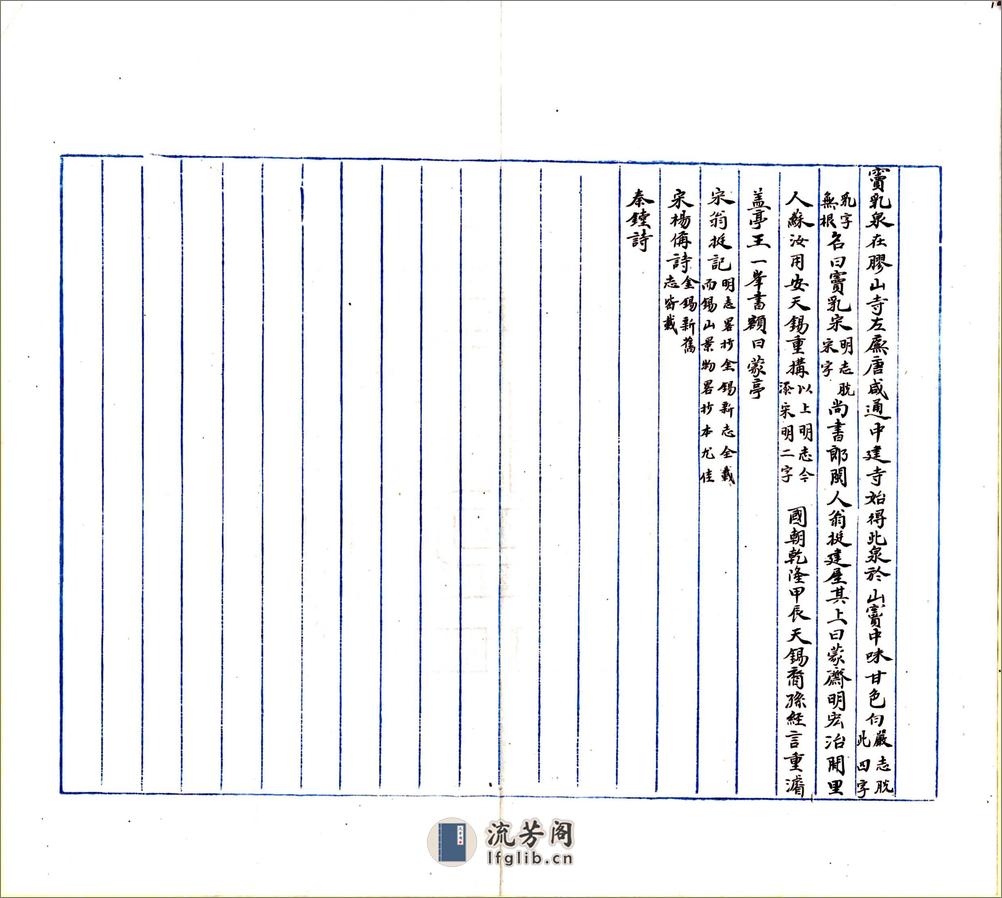 竇乳泉在膠山寺左廡唐咸通中建寺始得此泉於山竇中味甘色白嚴志脫此四字
乳字無根名曰竇乳宋明志脫宋字尚書郎閔人翁挺建屋其上曰蒙齋明宏治閒里
人蘇汝用安天錫重搆以上明志今添宋明二字 國朝乾隆甲辰天錫裔孫經言重濬
蓋亭王一峯書額曰蒙亭
宋翁挺記明志畧抄金錫新志全載而錫山景物畧抄本尤佳
宋楊備詩金錫新舊志皆載
秦鍾詩
流芳阁
lfglib.cn